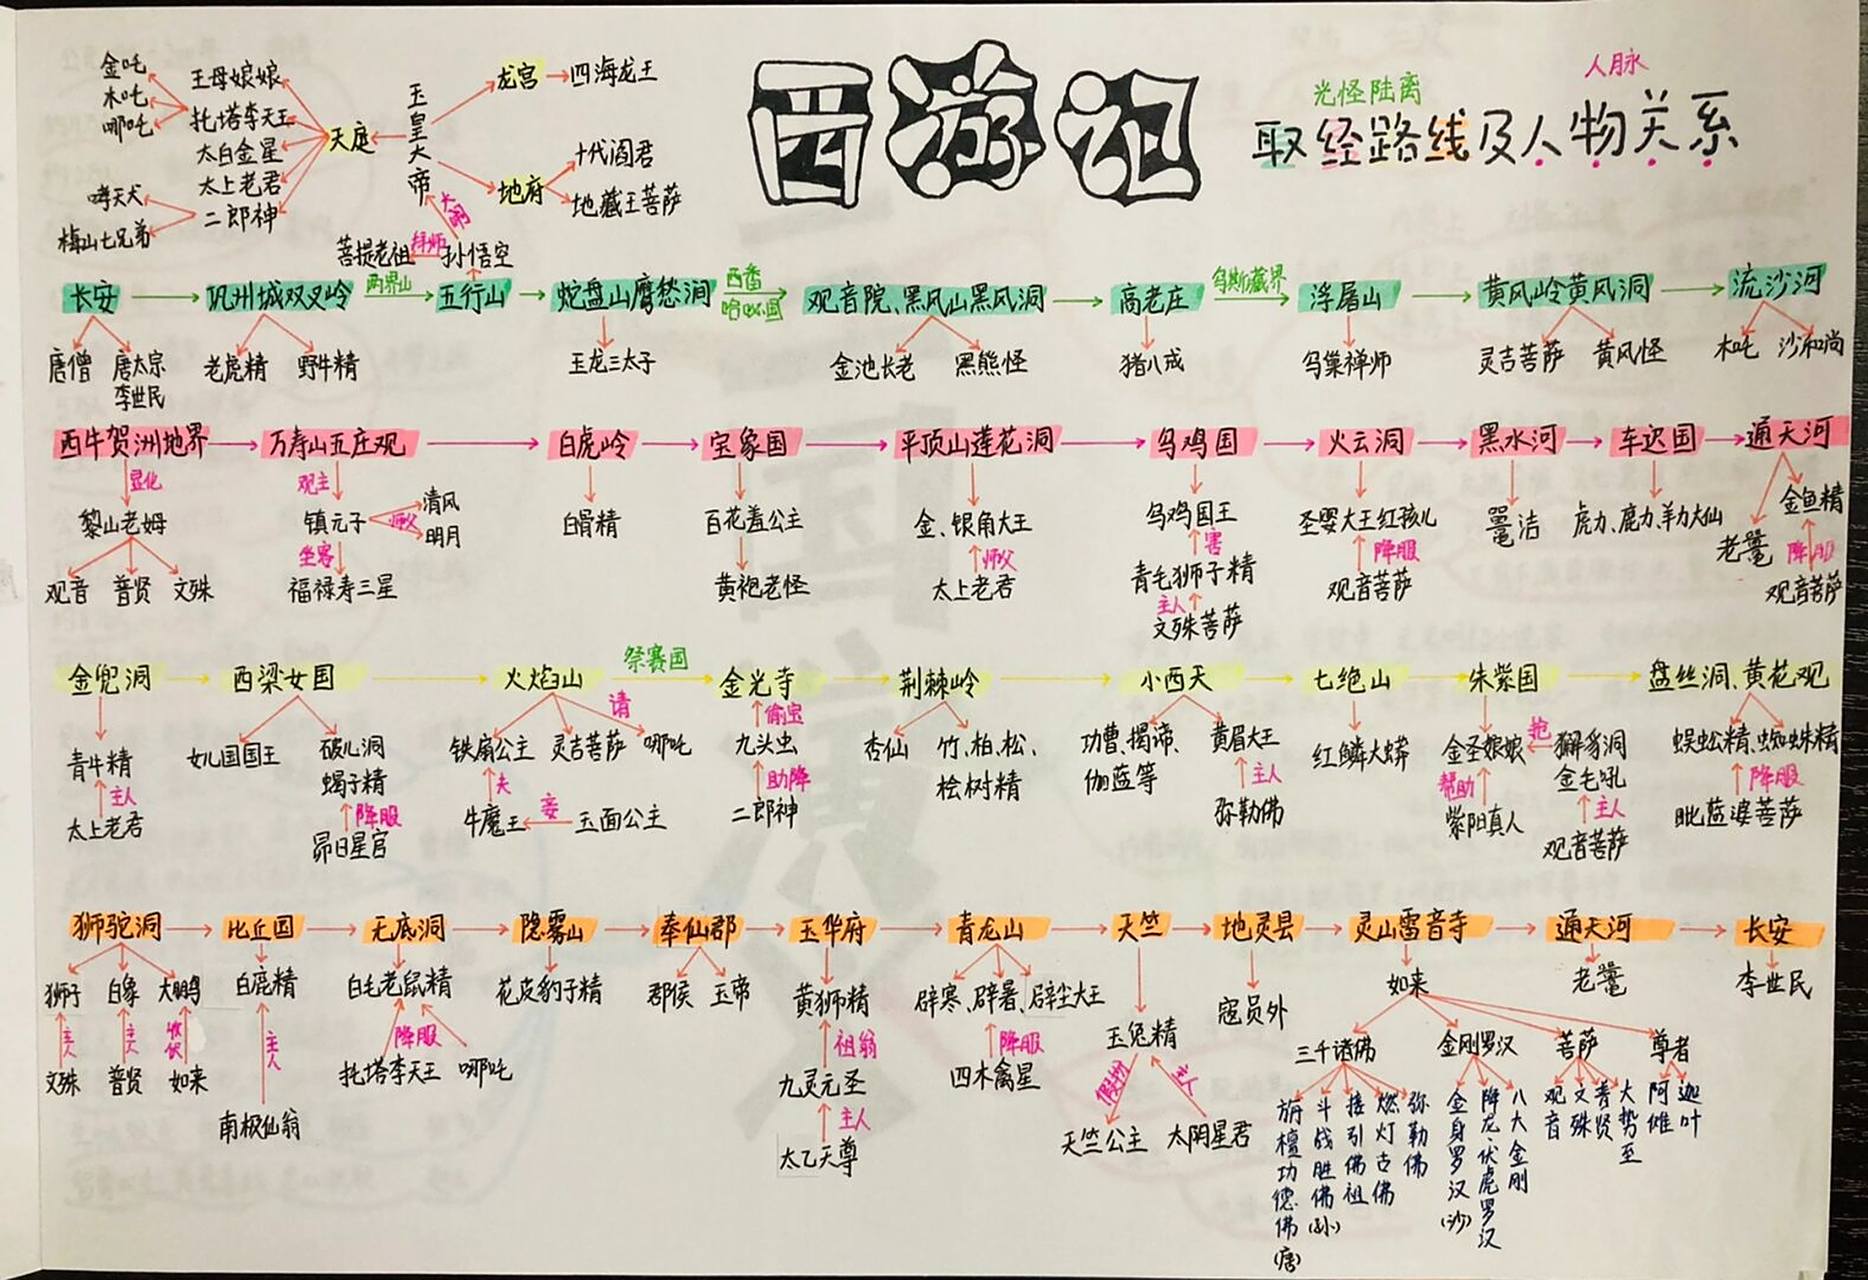 西游记
光怪陆离 人脉
取经路线及人物关系
金吒 木吒 哪吒
王母娘娘
托塔李天王
太白金星
太上老君
二郎神
哮天犬
梅山七兄弟
天庭
玉皇大帝
龙宫 四海龙王
地府 十代阎君
地藏王菩萨
大闹
菩提老祖 拜师 孙悟空
长安 巩州城双叉岭 两界山 五行山 蛇盘山鹰愁涧 西番哈咇国 观音院、黑风山黑风洞 高老庄 乌斯藏界 浮屠山 黄风岭黄风洞 流沙河
唐僧 唐太宗 老虎精 野牛精 玉龙三太子 金池长老 黑熊怪 猪八戒 乌巢禅师 灵吉菩萨 黄风怪 木吒 沙和尚
李世民
西牛贺洲地界 万寿山五庄观 白虎岭 宝象国 平顶山莲花洞 乌鸡国 火云洞 黑水河 车迟国 通天河
显化 观主
黎山老姆 镇元子 师父 清风 明月 白骨精 百花羞公主 金、银角大王 乌鸡国王 圣婴大王红孩儿 鼍洁 虎力、鹿力、羊力大仙 金鱼精
坐客 师父 害 降服 老鼋 降服
观音 普贤 文殊 福禄寿三星 黄袍老怪 太上老君 青毛狮子精 观音菩萨 观音菩萨
主人
文殊菩萨
金兜洞 西梁女国 火焰山 祭赛国 金光寺 荆棘岭 小西天 七绝山 朱紫国 盘丝洞、黄花观
请 偷宝 抢
青牛精 女儿国国王 破儿洞 铁扇公主 灵吉菩萨 哪吒 九头虫 杏仙 竹、柏、松、 功曹、揭谛、 黄眉大王 红鳞大蟒 金圣娘娘 獬豸洞 蜈蚣精、蜘蛛精
蝎子精 桧树精 伽蓝等 金毛吼
主人 降服 夫 妾 助降 主人 帮助 主人 降服
太上老君 昴日星官 牛魔王 玉面公主 二郎神 弥勒佛 紫阳真人 观音菩萨 毗蓝婆菩萨
狮驼洞 比丘国 无底洞 隐雾山 奉仙郡 玉华府 青龙山 天竺 地灵县 灵山雷音寺 通天河 长安
狮子 白象 大鹏 白鹿精 白毛老鼠精 花皮豹子精 郡侯 玉帝 黄狮精 辟寒、辟暑、辟尘大王 玉兔精 寇员外 如来 老鼋 李世民
主人 主人 收伏 主人 降服 祖翁 降服 假扮 主人
文殊 普贤 如来 南极仙翁 托塔李天王 哪吒 九灵元圣 四木禽星 天竺公主 太阴星君
主人
太乙天尊
三千诸佛 金刚罗汉 菩萨 尊者
旃檀功德佛(唐)
斗战胜佛(孙)
接引佛祖
燃灯古佛
弥勒佛
金身罗汉(沙)
降龙、伏虎罗汉
八大金刚
观音
文殊
普贤
大势至
阿傩
迦叶